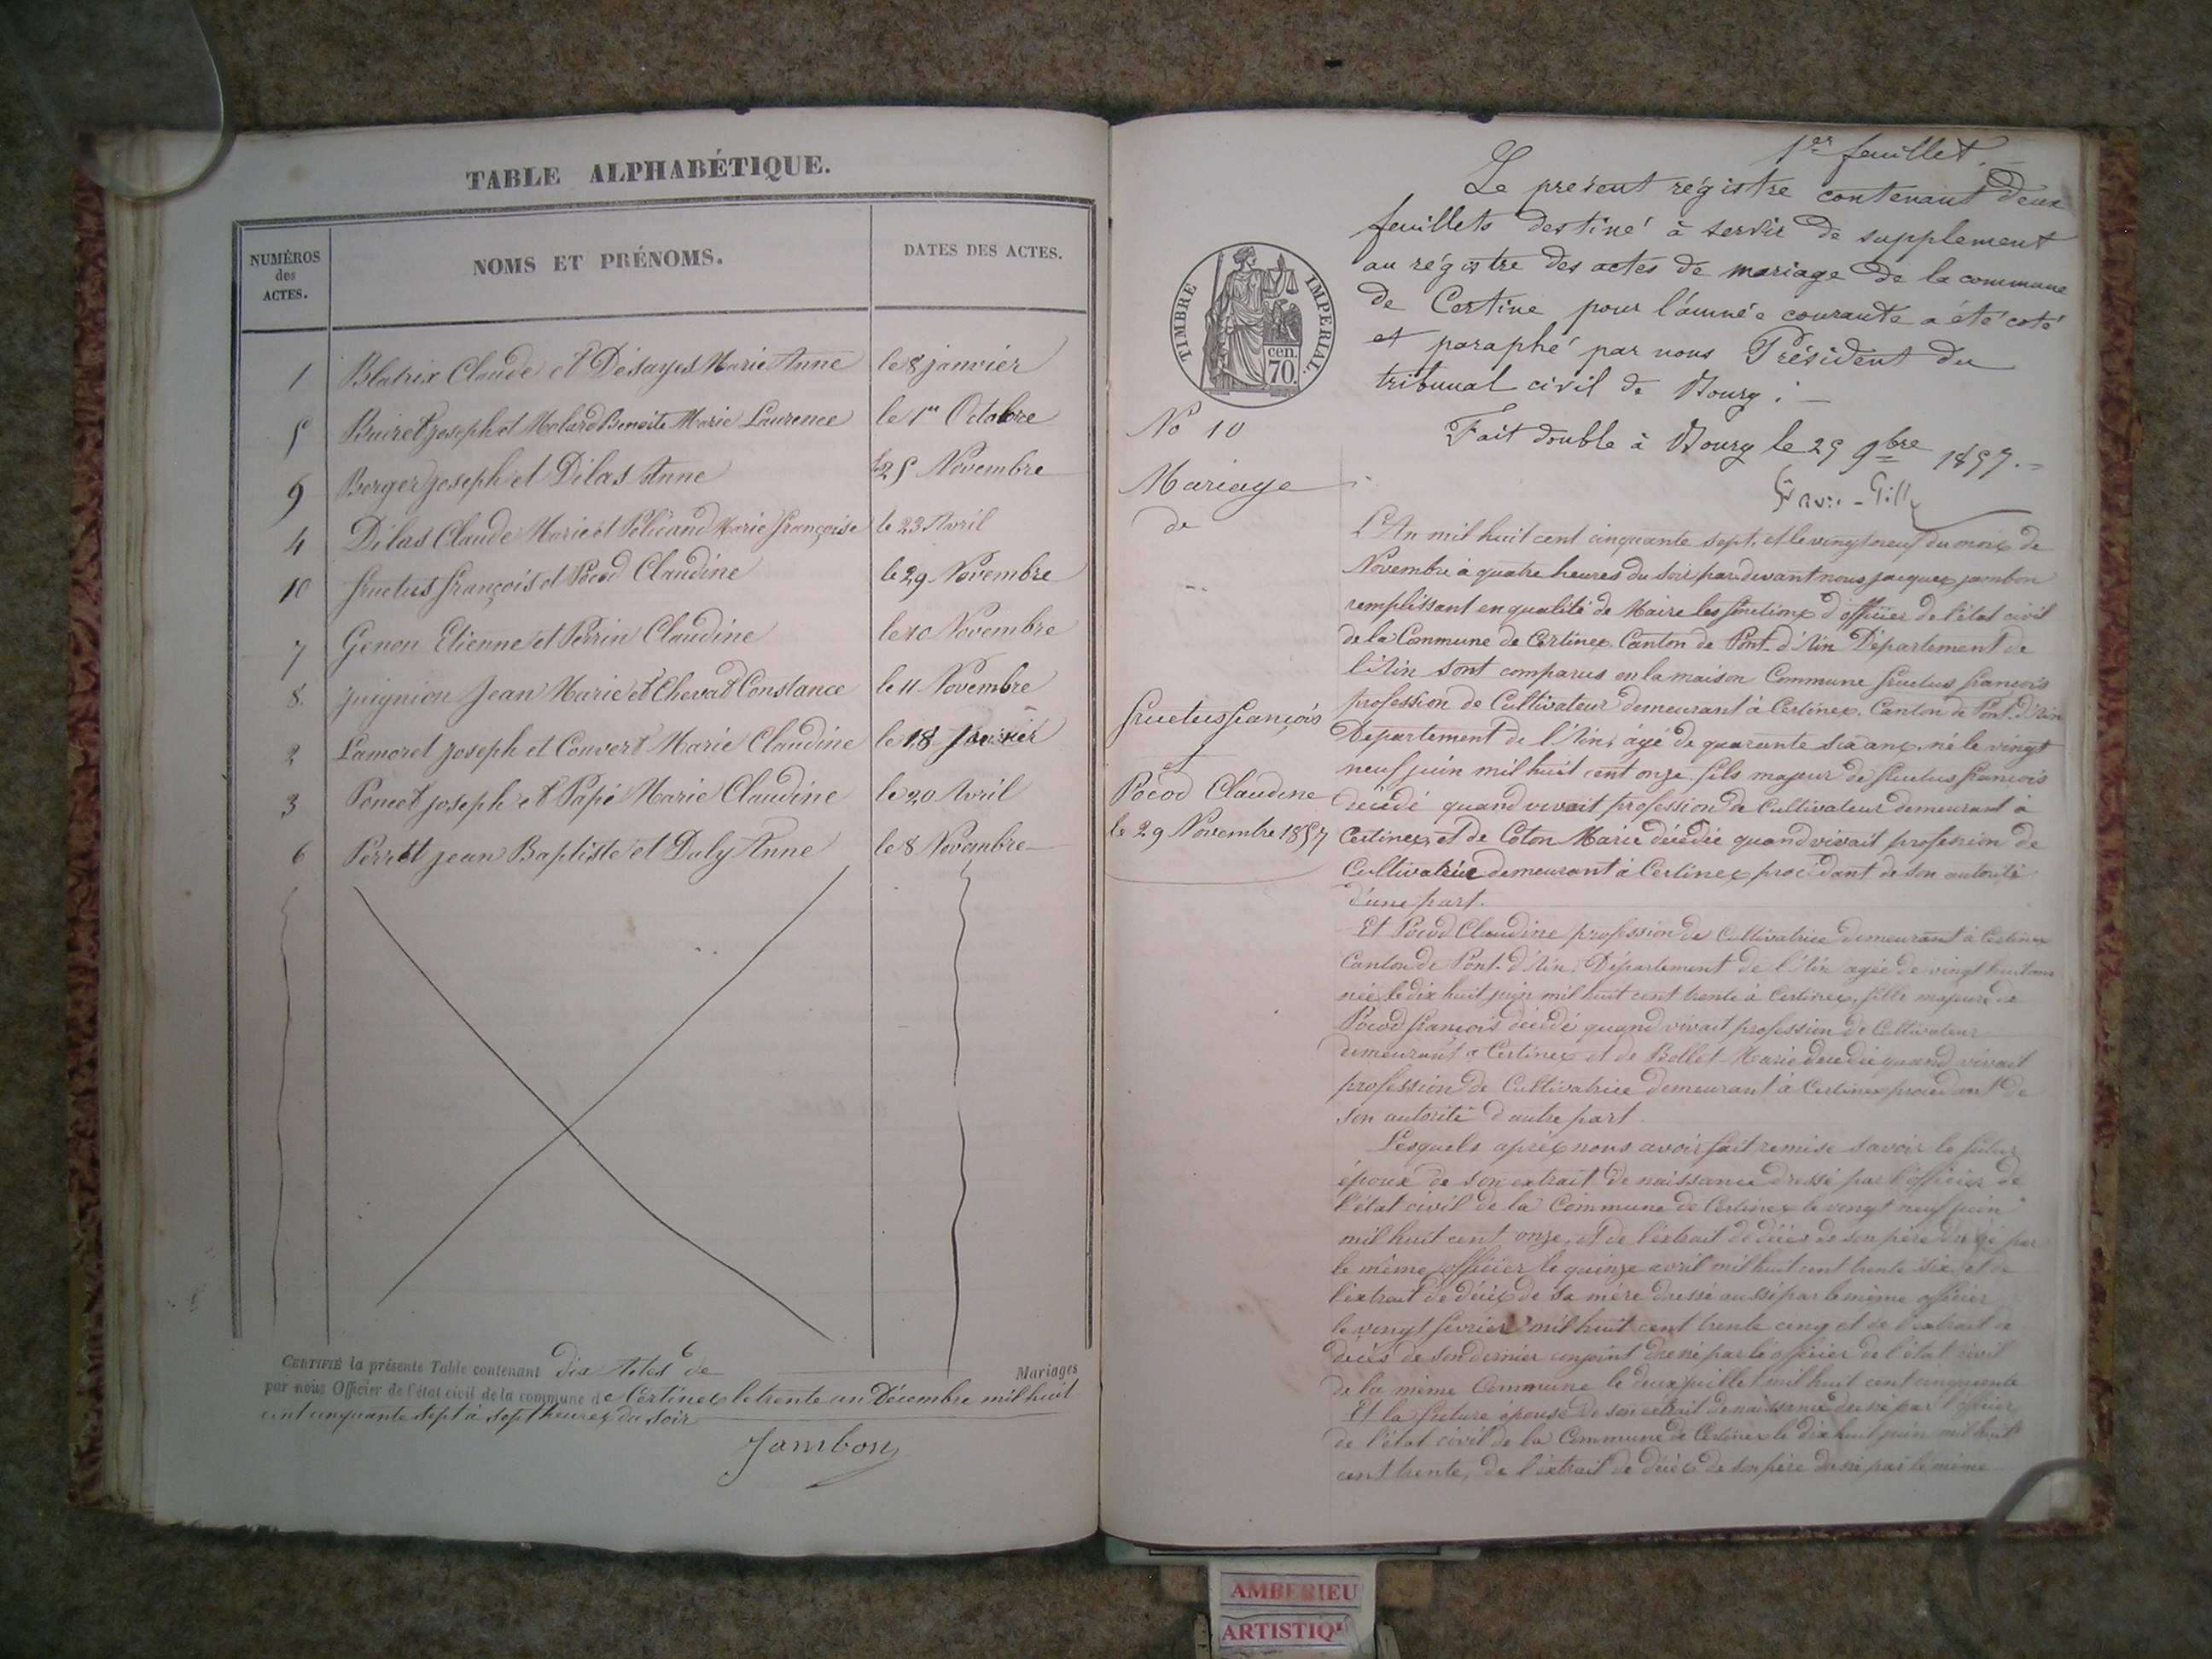 TABLE ALPHABÉTIQUE.
NUMÉROS des ACTES.
NOMS ET PRÉNOMS.
DATES DES ACTES.
1 Blatrix Claude et Désayes Marie Anne le 8 janvier
5 Buiret joseph et Molard Benoite Marie Laurence le 1er Octobre
9 Berger joseph et Dilas Anne le 25 Novembre
4 Dilas Claude Marie et Pélicand Marie françoise le 23 Avril
10 fructus françois et Pocod Claudine le 29 Novembre
7 Genon Etienne et Perrin Claudine le 10 Novembre
8. juignion Jean Marie et Chevat Constance le 11 Novembre
2 Lamoret joseph et Convert Marie Claudine le 18
3 Poncet joseph et Papé Marie Claudine le 20 Avril
6 Perret jean Baptiste et Duly Anne le 8 Novembre
CERTIFIÉ la présente Table contenant dix Actes de Mariages
par nous Officier de l'état civil de la commune de Certines le trente un Décembre mil huit
cent cinquante sept à sept heures du soir
Jambon
1er feuillet.
Le présent régistre contenant deux
feuillets destiné à servir de supplément
au régistre des actes de mariage de la commune
de Certine pour l'année courante a été coté
et paraphé par nous Président du
tribunal civil de Bourg :
Fait double à Bourg le 25 9bre 1857.
TIMBRE IMPERIAL.
cen.
70.
No 10
Mariage
de
fructus françois
et
Pocod Claudine
le 29 Novembre 1857
L'An mil huit cent cinquante sept, et le vingt neuf du mois de
Novembre à quatre heures du soir par devant nous jacques jambon
remplissant en qualité de Maire les fonctions d'officier de l'état civil
de la Commune de Certines Canton de Pont-d'Ain Département de
l'Ain sont comparus en la maison Commune fructus françois
profession de Cultivateur demeurant à Certines. Canton de Pont-d'Ain
Département de l'Ain, âgé de quarante six ans, né le vingt
neuf juin mil huit cent onze fils majeur de fructus françois
décédé quand vivait profession de Cultivateur demeurant à
Certines, et de Coton Marie décédée quand vivait profession de
Cultivatrice demeurant à Certines procédant de son autorité
d'une part.
Et Pocod Claudine profession de Cultivatrice demeurant à Certines
Canton de Pont-d'Ain, Département de l'Ain agée de vingt huit ans
née le dix huit juin mil huit cent trente à Certines, fille majeure de
Pocod françois décédé quand vivait profession de Cultivateur
demeurant à Certines et de Bollet Marie décédée quand vivait
profession de Cultivatrice demeurant à Certines procédant de
son autorité d'autre part.
Lesquels après nous avoir fait remise savoir le futur
époux de son extrait de naissance dressé par l'officier de
l'état civil de la Commune de Certines le vingt neuf juin
mil huit cent onze, et de l'extrait de décès de son père dressé par
le même officier le quinze avril mil huit cent trente six et de
l'extrait de décès de sa mère dressé aussi par le même officier
le vingt février mil huit cent trente cinq et de l'extrait de
décès de son dernier conjoint dressé par l'officier de l'état civil
de la même Commune le deux juillet mil huit cent cinquante
Et la future épouse de son extrait de naissance dressé par l'officier
de l'état civil de la Commune de Certines le dix huit juin mil huit
cent trente, de l'extrait de décès de son père dressé par le même
AMBERIEU
ARTISTIQ